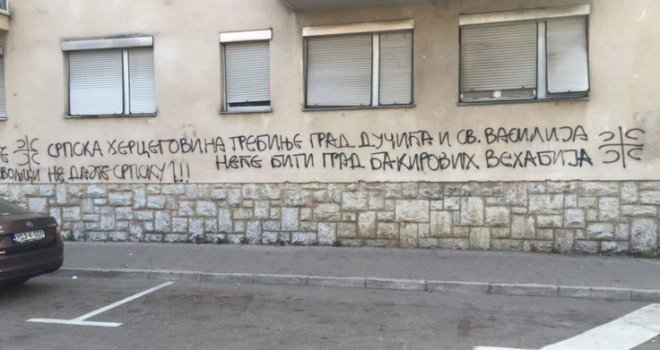 СРПСКА ХЕРЦЕГОВИНА ТРЕБИЊЕ ГРАД ДУЧИЋА И СВ. ВАСИЛИЈА
НЕЋЕ БИТИ ГРАД БАКИРОВИХ ВЕХАБИЈА
НЕ ДАЈТЕ СРПСКУ !!!